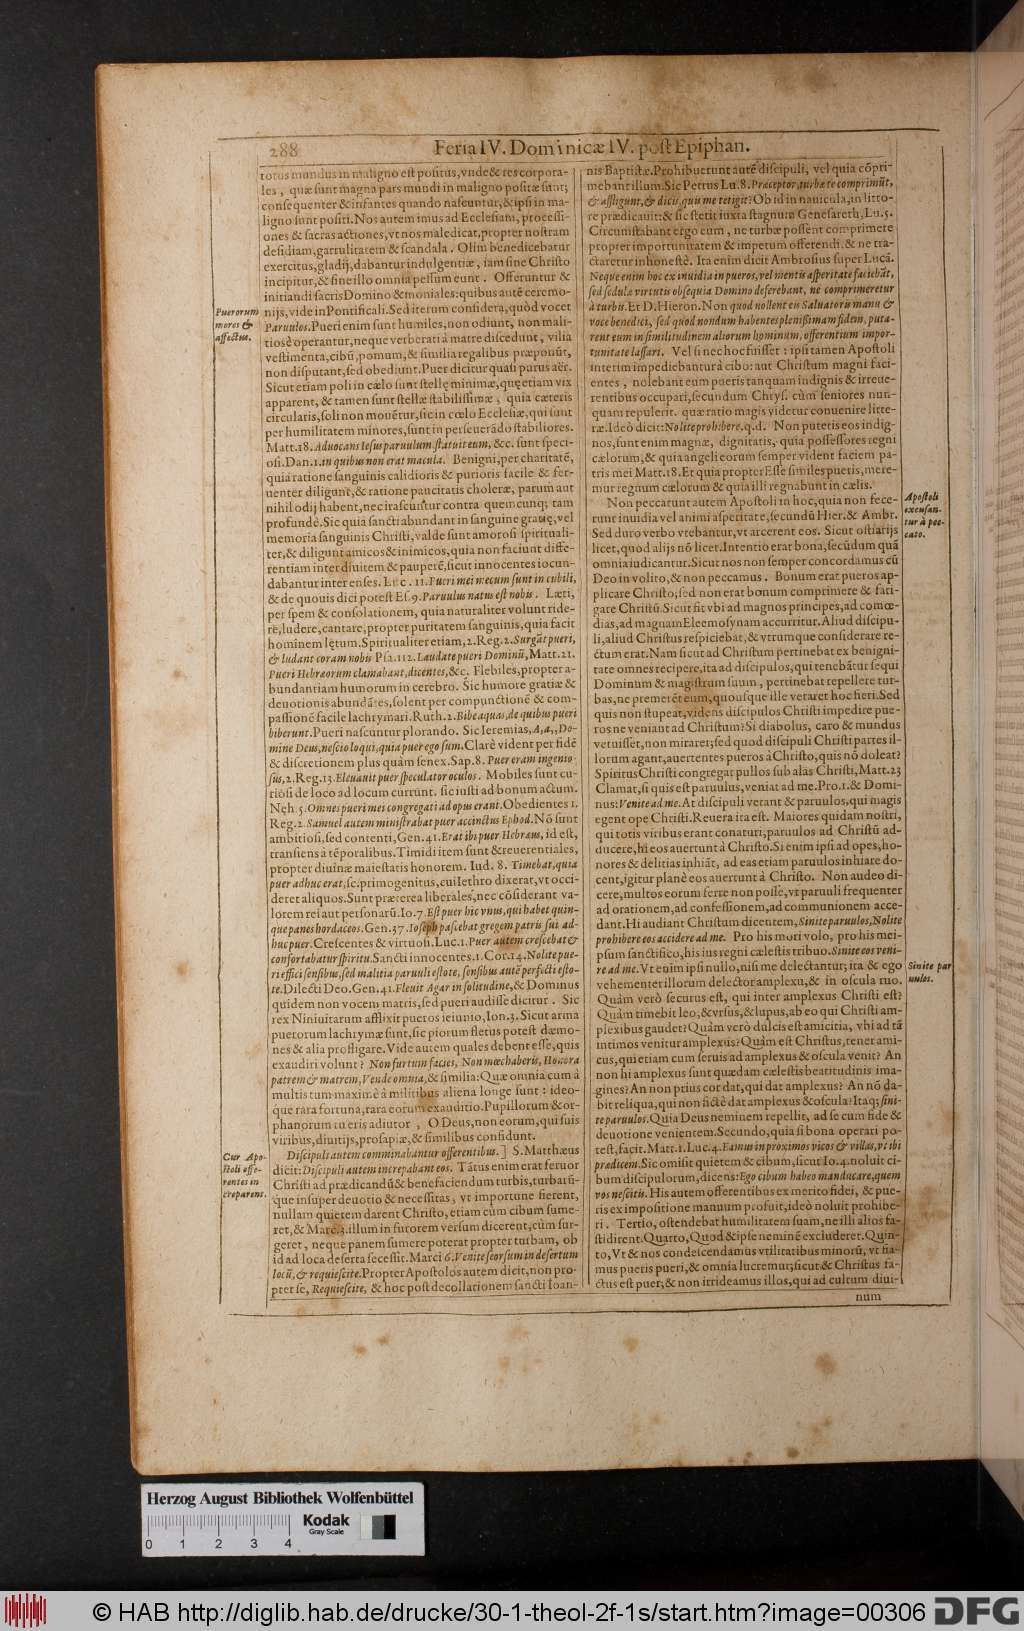 288
Feria IV. Dominicæ IV. post Epiphan.
totus mundus in maligno est positus, vnde & res corpora-
les, quæ sunt magna pars mundi in maligno positæ sunt;
consequenter & infantes quando nascuntur, & ipsi in ma-
ligno sunt positi. Nos autem imus ad Ecclesiam, processi-
ones & sacras actiones, vt nos maledicat, propter nostram
desidiam, garrulitatem & scandala. Olim benedicebatur
exercitus, gladij, dabantur indulgentiæ, iam sine Christo
incipitur, & sine illo omnia pessum eunt. Offeruntur &
initiandi sacris Domino & moniales: quibus autē ceremo-
nijs, vide in Pontificali. Sed iterum considera, quòd vocet
Paruulos. Pueri enim sunt humiles, non odiunt, non mali-
tiosè operantur, neque verberati à matre discedunt, vilia
vestimenta, cibū, pomum, & similia regalibus præponūt,
non disputant, sed obediunt. Puer dicitur quasi purus aër.
Sicut etiam poli in cælo sunt stellę minimæ, quę etiam vix
apparent, & tamen sunt stellæ stabilissimæ, quia cæteris
circularis, soli non mouētur, sic in cœlo Ecclesiæ, qui sunt
per humilitatem minores, sunt in perseuerādo stabiliores.
Matt. 18. Aduocans Iesus paruulum statuit eum, &c. sunt speci-
osi. Dan. 1. in quibus non erat macula. Benigni, per charitatē,
quia ratione sanguinis calidioris & purioris facile & fer-
uenter diligunt, & ratione paucitatis choleræ, parum aut
nihil odij habent, nec irascuntur contra quemcunq; tam
profundè. Sic quia sancti abundant in sanguine gratię, vel
memoria sanguinis Christi, valde sunt amorosi spirituali-
ter, & diligunt amicos & inimicos, quia non faciunt diffe-
rentiam inter diuitem & pauperē, sicut innocentes iocun-
dabantur inter enses. Luc. 11. Pueri mei mecum sunt in cubili,
& de quouis dici potest Es. 9. Paruulus natus est nobis. Læti,
per spem & consolationem, quia naturaliter volunt ride-
re, ludere, cantare, propter puritatem sanguinis, quia facit
hominem lętum. Spiritualiter etiam, 2. Reg. 2. Surgāt pueri,
& ludant coram nobis Psa. 112. Laudate pueri Dominū, Matt. 21.
Pueri Hebræorum clamabant, dicentes, &c. Flebiles, propter a-
bundantiam humorum in cerebro. Sic humore gratiæ &
deuotionis abundātes, solent per compunctionē & com-
passionē facile lachrymari. Ruth. 2. Bibe aquas, de quibus pueri
biberunt. Pueri nascuntur plorando. Sic Ieremias, A, a,, Do-
mine Deus, nescio loqui, quia puer ego sum. Clarè vident per fidē
& discretionem plus quàm senex. Sap. 8. Puer eram ingenio
sus, 2. Reg. 13. Eleuauit puer speculator oculos. Mobiles sunt cu-
riosi de loco ad locum currunt. sic iusti ad bonum actum.
Nęh. 5. Omnes pueri mei congregati ad opus erant. Obedientes 1.
Reg. 2. Samuel autem ministrabat puer accinctus Ephod. Nō sunt
ambitiosi, sed contenti, Gen. 41. Erat ibi puer Hebræus, id est,
transiens à tēporalibus. Timidi item sunt & reuerentiales,
propter diuinæ maiestatis honorem. Iud. 8. Timebat, quia
puer adhuc erat, sc. primogenitus, cui Iethro dixerat, vt occi-
deret aliquos. Sunt præterea liberales, nec cōsiderant va-
lorem rei aut personarū. Io. 7. Est puer hic vnus, qui habet quin-
que panes hordaceos. Gen. 37. Ioseph pascebat gregem patris sui ad-
huc puer. Crescentes & virtuosi. Luc. 1. Puer autem crescebat &
confortabatur spiritu. Sancti innocentes. 1. Cor. 14. Nolite pue-
ri effici sensibus, sed malitia paruuli estote, sensibus autē perfecti esto-
te. Dilecti Deo. Gen. 41. Fleuit Agar in solitudine, & Dominus
quidem non vocem matris, sed pueri audisse dicitur. Sic
rex Niniuitarum afflixit pueros ieiunio, Ion. 3. Sicut arma
puerorum lachrymæ sunt, sic piorum fletus potest dæmo-
nes & alia profligare. Vide autem quales debent esse, quis
exaudiri volunt? Non furtum facies, Non mœchaberis, Honora
patrem & matrem, Vende omnia, & similia: Quæ omnia cum à
multis tum maximè à militibus aliena longe sunt: ideo-
que rara fortuna, rara eorum exauditio. Pupillorum & or-
phanorum tu eris adiutor, O Deus, non eorum, qui suis
viribus, diuitijs, prosapiæ, & similibus confidunt.
Discipuli autem comminabantur offerentibus.] S. Matthæus
dicit: Discipuli autem increpabant eos. Tātus enim erat feruor
Christi ad prædicandū & benefaciendum turbis, turbarū-
que insuper deuotio & necessitas, vt importune fierent,
nullam quietem darent Christo, etiam cùm cibum sume-
ret, & Marc. 3. illum in furorem versum dicerent, cùm sur-
geret, neque panem sumere poterat propter turbam, ob
id ad loca deserta secessit. Marci 6. Venite seorsum in desertum
locū, & requiescite. Propter Apostolos autem dicit, non pro-
pter se, Requiescite, & hoc post decollationem sancti Ioan-
Puerorum
mores &
affectus.
Cur Apo-
stoli offe-
rentes in
creparent.
nis Baptistæ. Prohibuerunt autē discipuli, vel quia cōpri-
mebant illum. Sic Petrus Lu. 8. Præceptor, turbæ te comprimūt,
& affligunt, & dicis, quis me tetigit? Ob id in nauicula, in litto-
re prædicauit: & sic stetit iuxta stagnum Genesareth, Lu. 5.
Circunstabant ergo eum, ne turbæ possent comprimete
propter importunitatem & impetum offerendi. & ne tra-
ctaretur inhonestè. Ita enim dicit Ambrosius super Lucā.
Neque enim hoc ex inuidia in pueros, vel mentis asperitate faciebāt,
sed sedulæ virtutis obsequia Domino deferebant, ne comprimeretur
à turbis. Et D. Hieron. Non quod nollent eis Saluatoris manu &
voce benedici, sed quod nondum habentes plenissimam fidem, puta-
rent eum in similitudinem aliorum hominum, offerentium impor-
tunitate lassari. Vel si nec hoc fuisset: ipsi tamen Apostoli
interim impediebantur à cibo: aut Christum magni faci-
entes, nolebant eum pueris tanquam indignis & irreue-
rentibus occupari, secundum Chrys. cùm seniores nun-
quam repulerit. quæ ratio magis videtur conuenire litte-
ræ. Ideò dicit: Nolite prohibere, q. d. Non putetis eos indig-
nos, sunt enim magnæ, dignitatis, quia possessores regni
cælorum, & quia angeli eorum semper vident faciem pa-
tris mei Matt. 18. Et quia propter Esse similes pueris, mere-
mur regnum cælorum & quia illi regnabunt in cælis.
Non peccarunt autem Apostoli in hoc, quia non fece-
runt inuidia vel animi asperitate, secundū Hier. & Ambr.
Sed duro verbo vtebantur, vt arcerent eos. Sicut ostiarijs
licet, quod alijs nō licet. Intentio erat bona, secūdum quā
omnia iudicantur. Sicut nos non semper concordamus cū
Deo in volito, & non peccamus. Bonum erat pueros ap-
plicare Christo; sed non erat bonum comprimere & fati-
gare Christū. Sicut fit vbi ad magnos principes, ad comœ-
dias, ad magnam Eleemosynam accurritur. Aliud discipu-
li, aliud Christus respiciebat, & vtrumque considerare re-
ctum erat. Nam sicut ad Christum pertinebat ex benigni-
tate omnes recipere, ita ad discipulos, qui tenebātur sequi
Dominum & magistrum suum, pertinebat repellere tur-
bas, ne premerēt eum, quousque ille vetaret hoc fieri. Sed
quis non stupeat, videns discipulos Christi impedire pue-
ros ne veniant ad Christum? Si diabolus, caro & mundus
vetuisset, non mirarer; sed quod discipuli Christi partes il-
lorum agant, auertentes pueros à Christo, quis nō doleat?
Spiritus Christi congregat pullos sub alas Christi, Matt. 23
Clamat, si quis est paruulus, veniat ad me. Pro. 1. & Domi-
nus: Venite ad me. At discipuli vetant & paruulos, qui magis
egent ope Christi. Reuera ita est. Maiores quidam nostri,
qui totis viribus erant conaturi, paruulos ad Christū ad-
ducere, hi eos auertunt à Christo. Si enim ipsi ad opes, ho-
nores & delitias inhiāt, ad eas etiam paruulos inhiare do-
cent, igitur planè eos auertunt à Christo. Non audeo di-
cere, multos eorum ferre non posse, vt paruuli frequenter
ad orationem, ad confessionem, ad communionem acce-
dant. Hi audiant Christum dicentem, Sinite paruulos, Nolite
prohibere eos accidere ad me. Pro his mori volo, pro his mei-
psum sanctifico, his ius regni cælestis tribuo. Sinite eos veni-
re ad me. Vt enim ipsi nullo, nisi me delectantur; ita & ego
vehementer illorum delector amplexu, & in oscula ruo.
Quàm verò securus est, qui inter amplexus Christi est?
Quàm timebit leo, & vrsus, & lupus, ab eo qui Christi am-
plexibus gaudet? Quàm verò dulcis est amicitia, vbi ad tā
intimos venitur amplexus? Quàm est Christus, tener ami-
cus, qui etiam cum seruis ad amplexus & oscula venit? An
non hi amplexus sunt quædam cælestis beatitudinis ima-
gines? An non prius cor dat, qui dat amplexus? An nō da-
bit reliqua, qui non fictè dat amplexus & oscula? Itaq; sini-
te paruulos. Quia Deus neminem repellit, ad se cum fide &
deuotione venientem. Secundo, quia si bona operari po-
test, facit. Matt. 1. Luc. 4. Eamus in proximos vicos & villas, vt ibi
prædicem. Sic omisit quietem & cibum, sicut Io. 4. noluit ci-
bum discipulorum, dicens: Ego cibum habeo manducare, quem
vos nescitis. His autem offerentibus ex merito fidei, & pue-
ris ex impositione manuum profuit, ideò noluit prohibe-
ri. Tertio, ostendebat humilitatem suam, ne illi alios fa-
stidirent. Quarto, Quod & ipse neminē excluderet. Quin-
to, Vt & nos condescendamus vtilitatibus minorū, vt fia-
mus pueris pueri, & omnia lucremur; sicut & Christus fa-
ctus est puer; & non irrideamus illos, qui ad cultum diui-
num
Apostoli
excusan-
tur à pec-
cato.
Sinite par
uulos.
Herzog August Bibliothek Wolfenbüttel
Kodak
Gray Scale
0 1 2 3 4
© HAB http://diglib.hab.de/drucke/30-1-theol-2f-1s/start.htm?image=00306
DFG